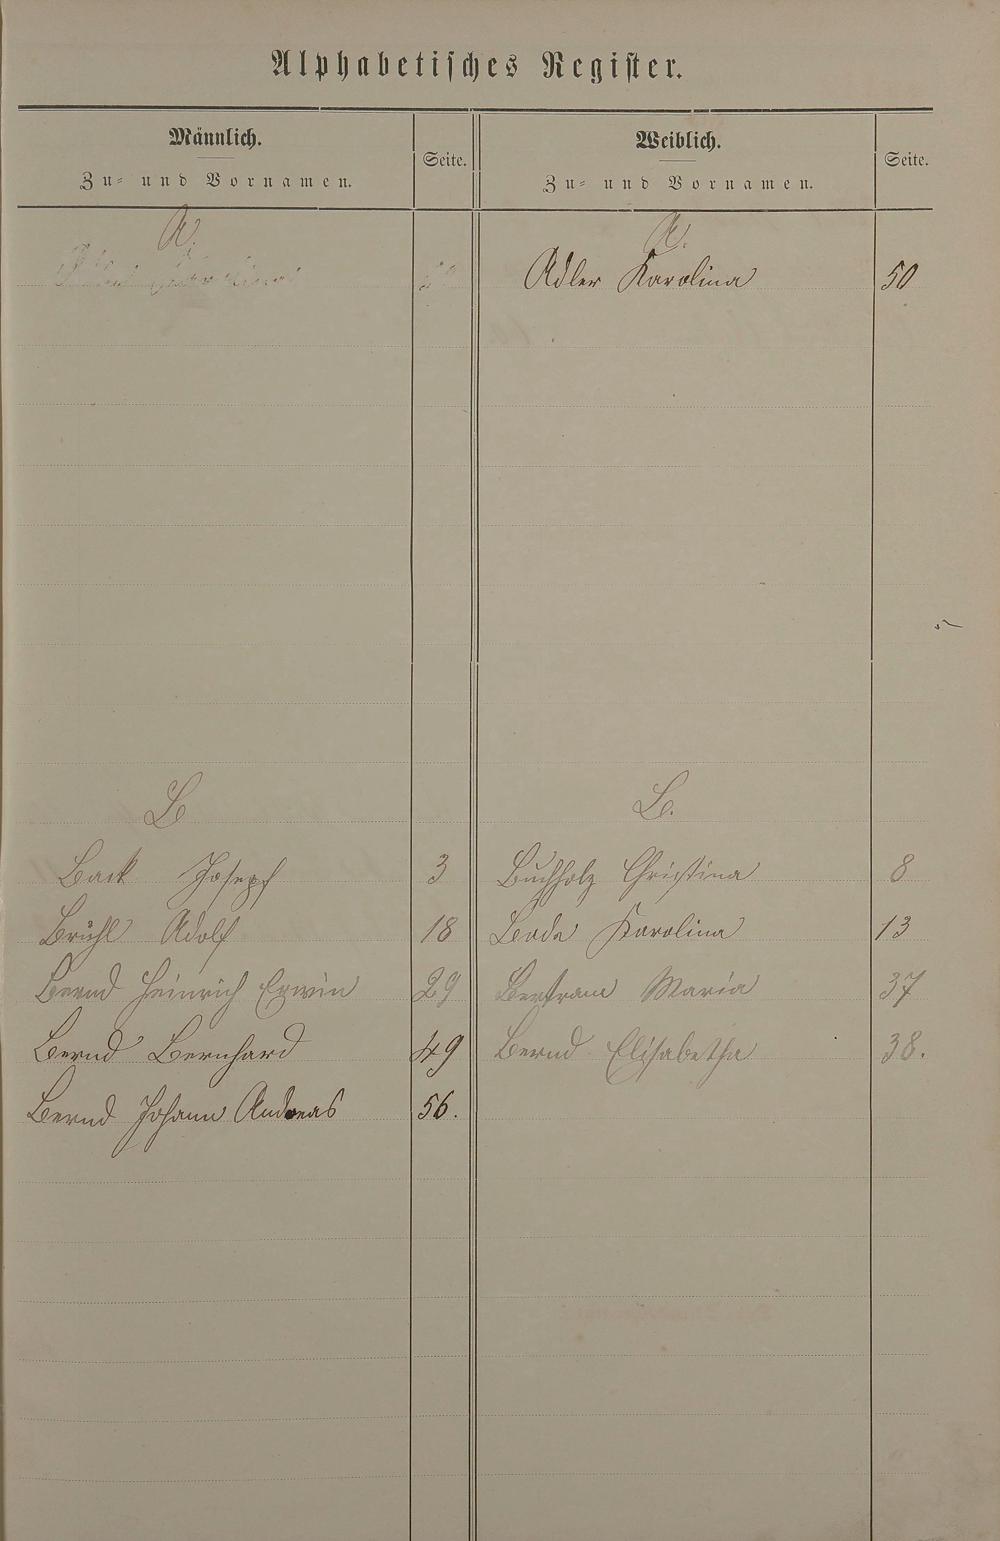 Alphabetisches Register.
Männlich.
Zu- und Vornamen.
Seite.
Weiblich.
Zu- und Vornamen.
Seite.
A.
A.
Adler Karolina 50
B
Back Josepf 3
Brühl Adolf 18
Bernd Heinrich Erwin 29
Bernd Bernhard 49
Bernd Johann Andreas 56.
B.
Buchholz Christina 8
Bode Karolina 13
Bertram Maria 37
Bernd Elisabetha 38.